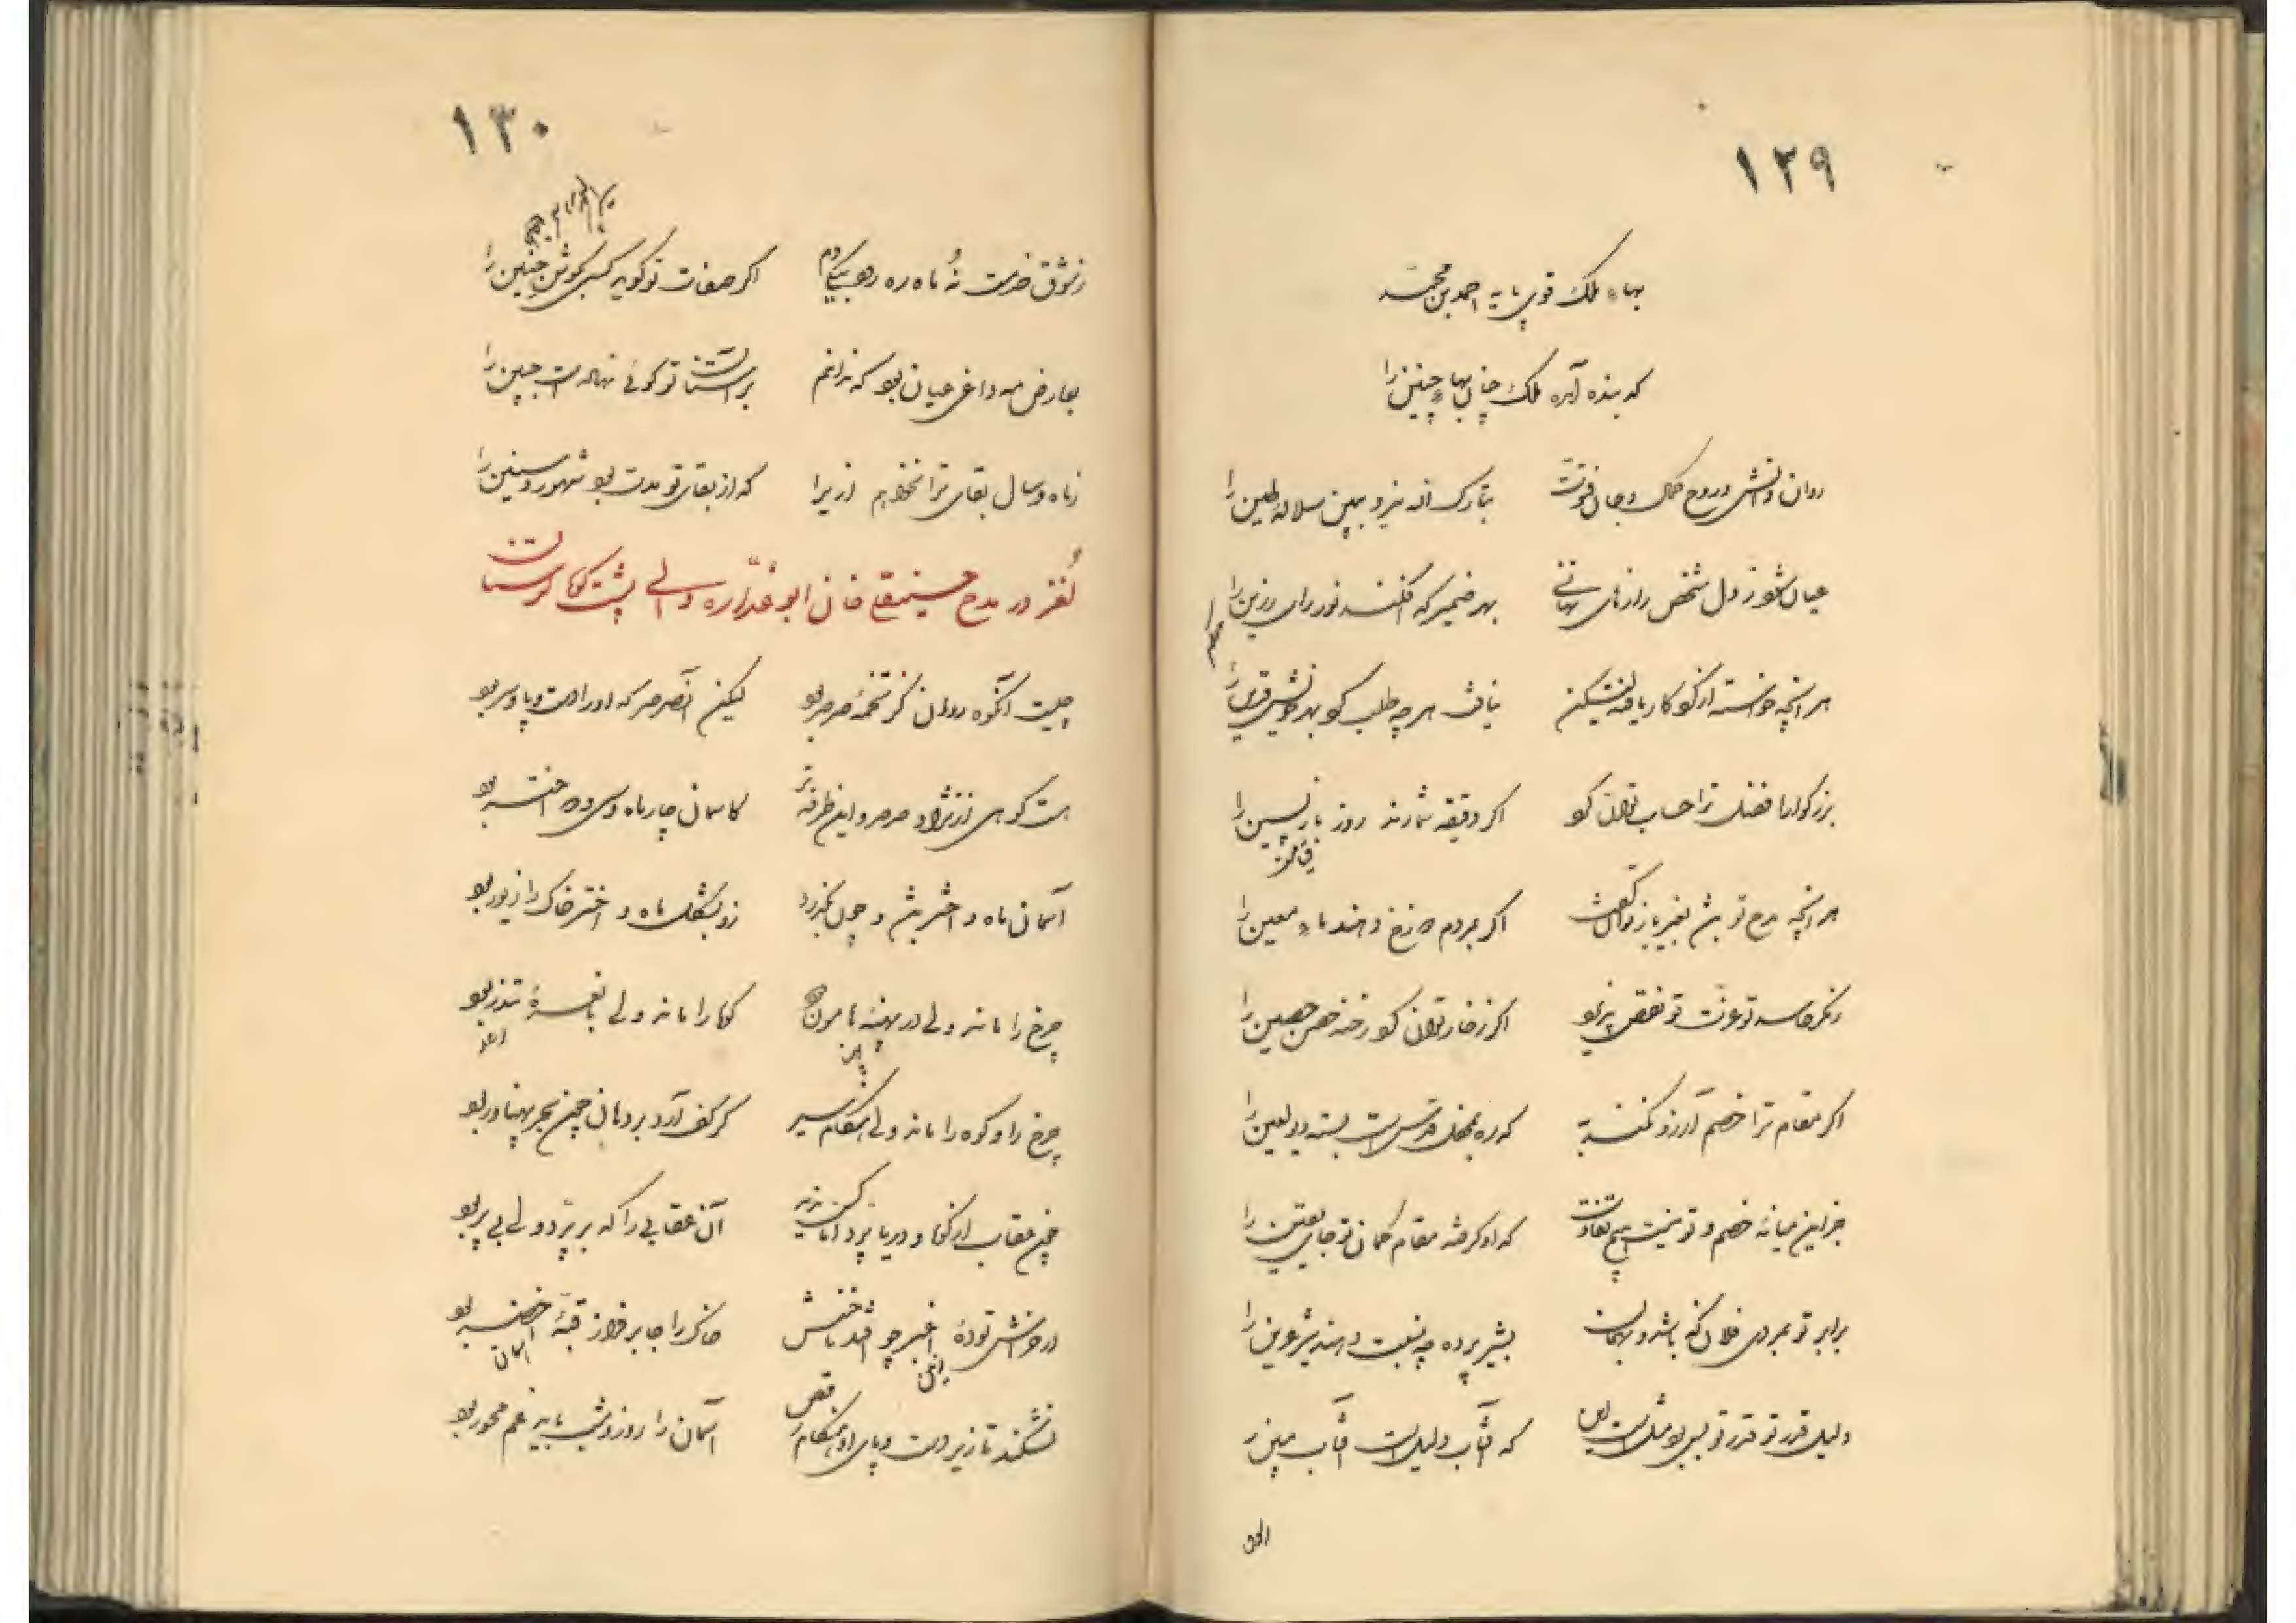 ۱۲۹
بهاء ملک قوی پایه احمد بن محمد
که بنده آمده ملک چنان بهاء چنین را
روان دانش و روح کمال و جان فتوت
تبارک الله نیز و ببین سلاله طین را
عیان شود ز دل شخص رازهای نهانی
بهر ضمیر که افکند نور رای رزین را
هر آنچه خواسته از کردگار یافته لیکن
نیافت هر چه طلب کرد بهر خویش قرین را
بزرگوارا فضل ترا حساب توان کرد
اگر دقیقه شمارند روز بازپسین را
هر آنچه مدح تو
اگر بمردم دوزخ دهند ماء معین را
ز مکر حاسد تو عزت تو نقص پذیرد
اگر ز خار توان کرد رخنه حصن حصین را
اگر مقام ترا خصم آرزو نکند به
که ره بمحفل قدس است بسته دیو لعین را
جز این میانه خصم و تو نیست هیچ تفاوت
که او گرفته مقام گمان تو جای یقین را
برابر تو بمردی فلان که باشد و بهمان
بشیر پرده چه نسبت دهند شیر عرین را
دلیل قدر تو قدر تو بس بود مثل است این
که آفتاب دلیل است آفتاب مبین را
۱۳۰
ز شوق حضرت نه ماه ره دهد بیکدم
اگر صفات تو گوید کسی بگوش جنین را
بعارض مه داغی عیان بود که ندانم
بر آستان تو گوئی نهاده است جبین را
ز ماه و سال بقای ترا نخواهم ازیرا
که از بقای تو مدت بود شهور و سنین را
لغز در مدح حسینقلی خان ابو غداره والی پشت کوه لرستان
چیست آنکوه روان کز تخمه صرصر بود
لیکن آنصرصر که او را دست و پا و سر بود
هست کوهی از نژاد صرصر و این طرفه تر
کاسمان چار ماه و سی و دو اختر بود
آسمان ماه و اختر بیش و چون بگذرد
زو بشکل ماه و اختر خاک را زیور بود
چرخ را ماند ولی در پهنه هامون
کوه را ماند ولی با نعره تندر بود
چرخ را و کوه را ماند ولی هنگام سیر
گر کف آرد بر دهان چون بحر پهناور بود
چون عقاب از کوه و دریا پرد اما کس ندید
آن عقابی را که بر پرد ولی بی پر بود
در خزش توده اغبر چو افتد باختش
خاک را جا بر فراز قبه اخضر بود
نشکند تا زیر دست و پای او هنگام رقص
آسمان را روز و شب باید غم محور بود